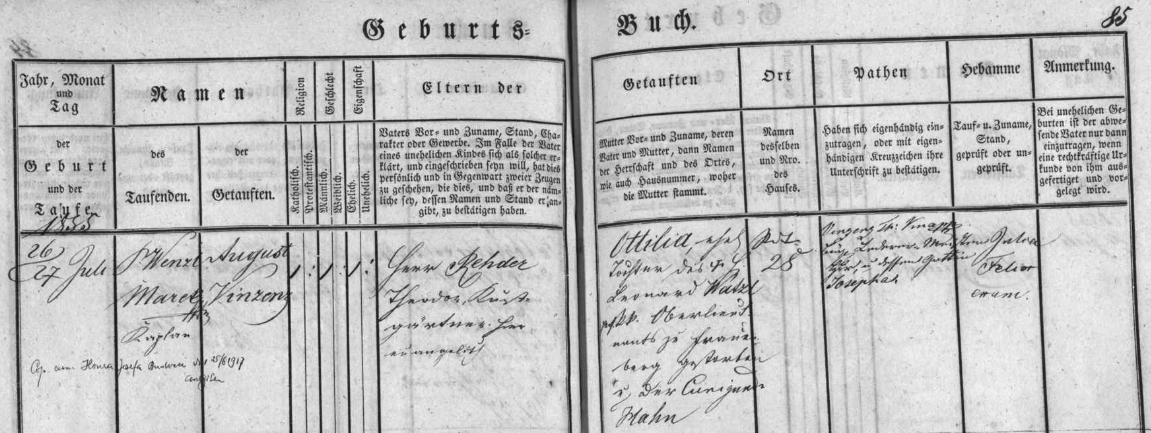 Geburts-
Buch.
85
Jahr, Monat
und
Tag
der
Geburt
und der
Taufe
Namen
des
Taufenden.
der
Getauften.
Religion
Katholisch.
Protestantisch.
Geschlecht
Männlich.
Weiblich.
Eigenschaft
Ehelich.
Unehelich.
Eltern der
Vaters Vor- und Zuname, Stand, Cha-
rakter oder Gewerbe. Im Falle der Vater
eines unehelichen Kindes sich als solcher er-
klärt, und eingeschrieben seyn will, hat dies
persönlich und in Gegenwart zweier Zeugen
zu geschehen, die dies, und daß er der näm-
liche sey, dessen Namen und Stand er an-
gibt, zu bestätigen haben.
Getauften
Mutter Vor- und Zuname, deren
Vater und Mutter, dann Namen
der Herrschaft und des Ortes,
wie auch Hausnummer, woher
die Mutter stammt.
Ort
Namen
desselben
und Nro.
des
Hauses.
Pathen
Haben sich eigenhändig ein-
zutragen, oder mit eigen-
händigen Kreuzzeichen ihre
Unterschrift zu bestätigen.
Hebamme
Tauf- u. Zuname,
Stand,
geprüft oder un-
geprüft.
Anmerkung.
Bei unehelichen Ge-
burten ist der abwe-
sende Vater nur dann
einzutragen, wenn
eine rechtkräftige Ur-
kunde von ihm aus-
gefertiget und vor-
gelegt wird.
1855
26
27 Juli
P Wenzl
Marek
Kaplan
August
Vinzenz
1 : 1 : 1 :
Herr Rehder
Theodor, Kunst-
gärtner hier
evangelisch
Ottilia ehel
Tochter des
Leonard Watzl
k. k. Oberlieut-
nants zu Frauen-
berg gestorben
u. der
Hahn
28
Vinzenz
Gattin
Josepha
Felix
exam.
25/6 1917